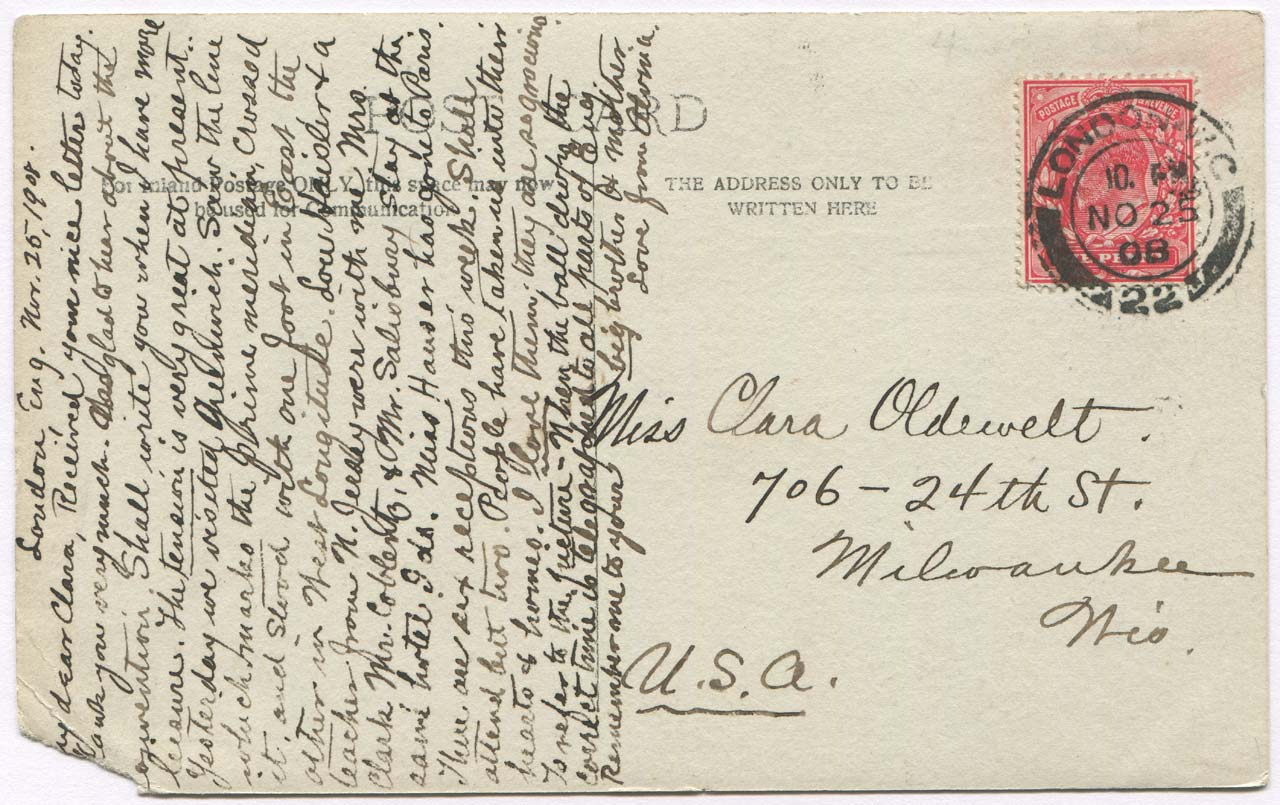 London, Eng. Nov. 25, 1908.
My dear Clara, Received your nice letter today.
Thank you very much. Was glad to hear about the
convention. Shall write you when I have more
leisure. The tension is very great at present.
Yesterday we visited Greenwich. Saw the line
which marks the prime meridian, Crossed
it, and Stood with one foot in East the
other in West Longitude. Low Snider & a
teacher from N. Jersey were with me. Mrs.
Clark, Mr. Coblentz, & Mr. Salisbury stay at the
same hotel I do. Miss Hauser had gone to Paris.
There are six receptions this week. Shall
attend but two. People have taken us into their
hearts & homes. I love them; they are so genuine.
To refer to the picture - When the ball drops the
correct time is telegraphed to all parts of Eng.
Remember me to your big brother & mother
Love from Alvinia.
POST CARD
For Inland Postage ONLY, this space may now
be used for Communication.
THE ADDRESS ONLY TO BE
WRITTEN HERE
POSTAGE REVENUE
ONE PENNY
LONDON. W.C.
10. PM
NO 25
08
22
Miss Clara Oldewelt.
706 - 24th St.
Milwaukee
Wis.
U.S.A.